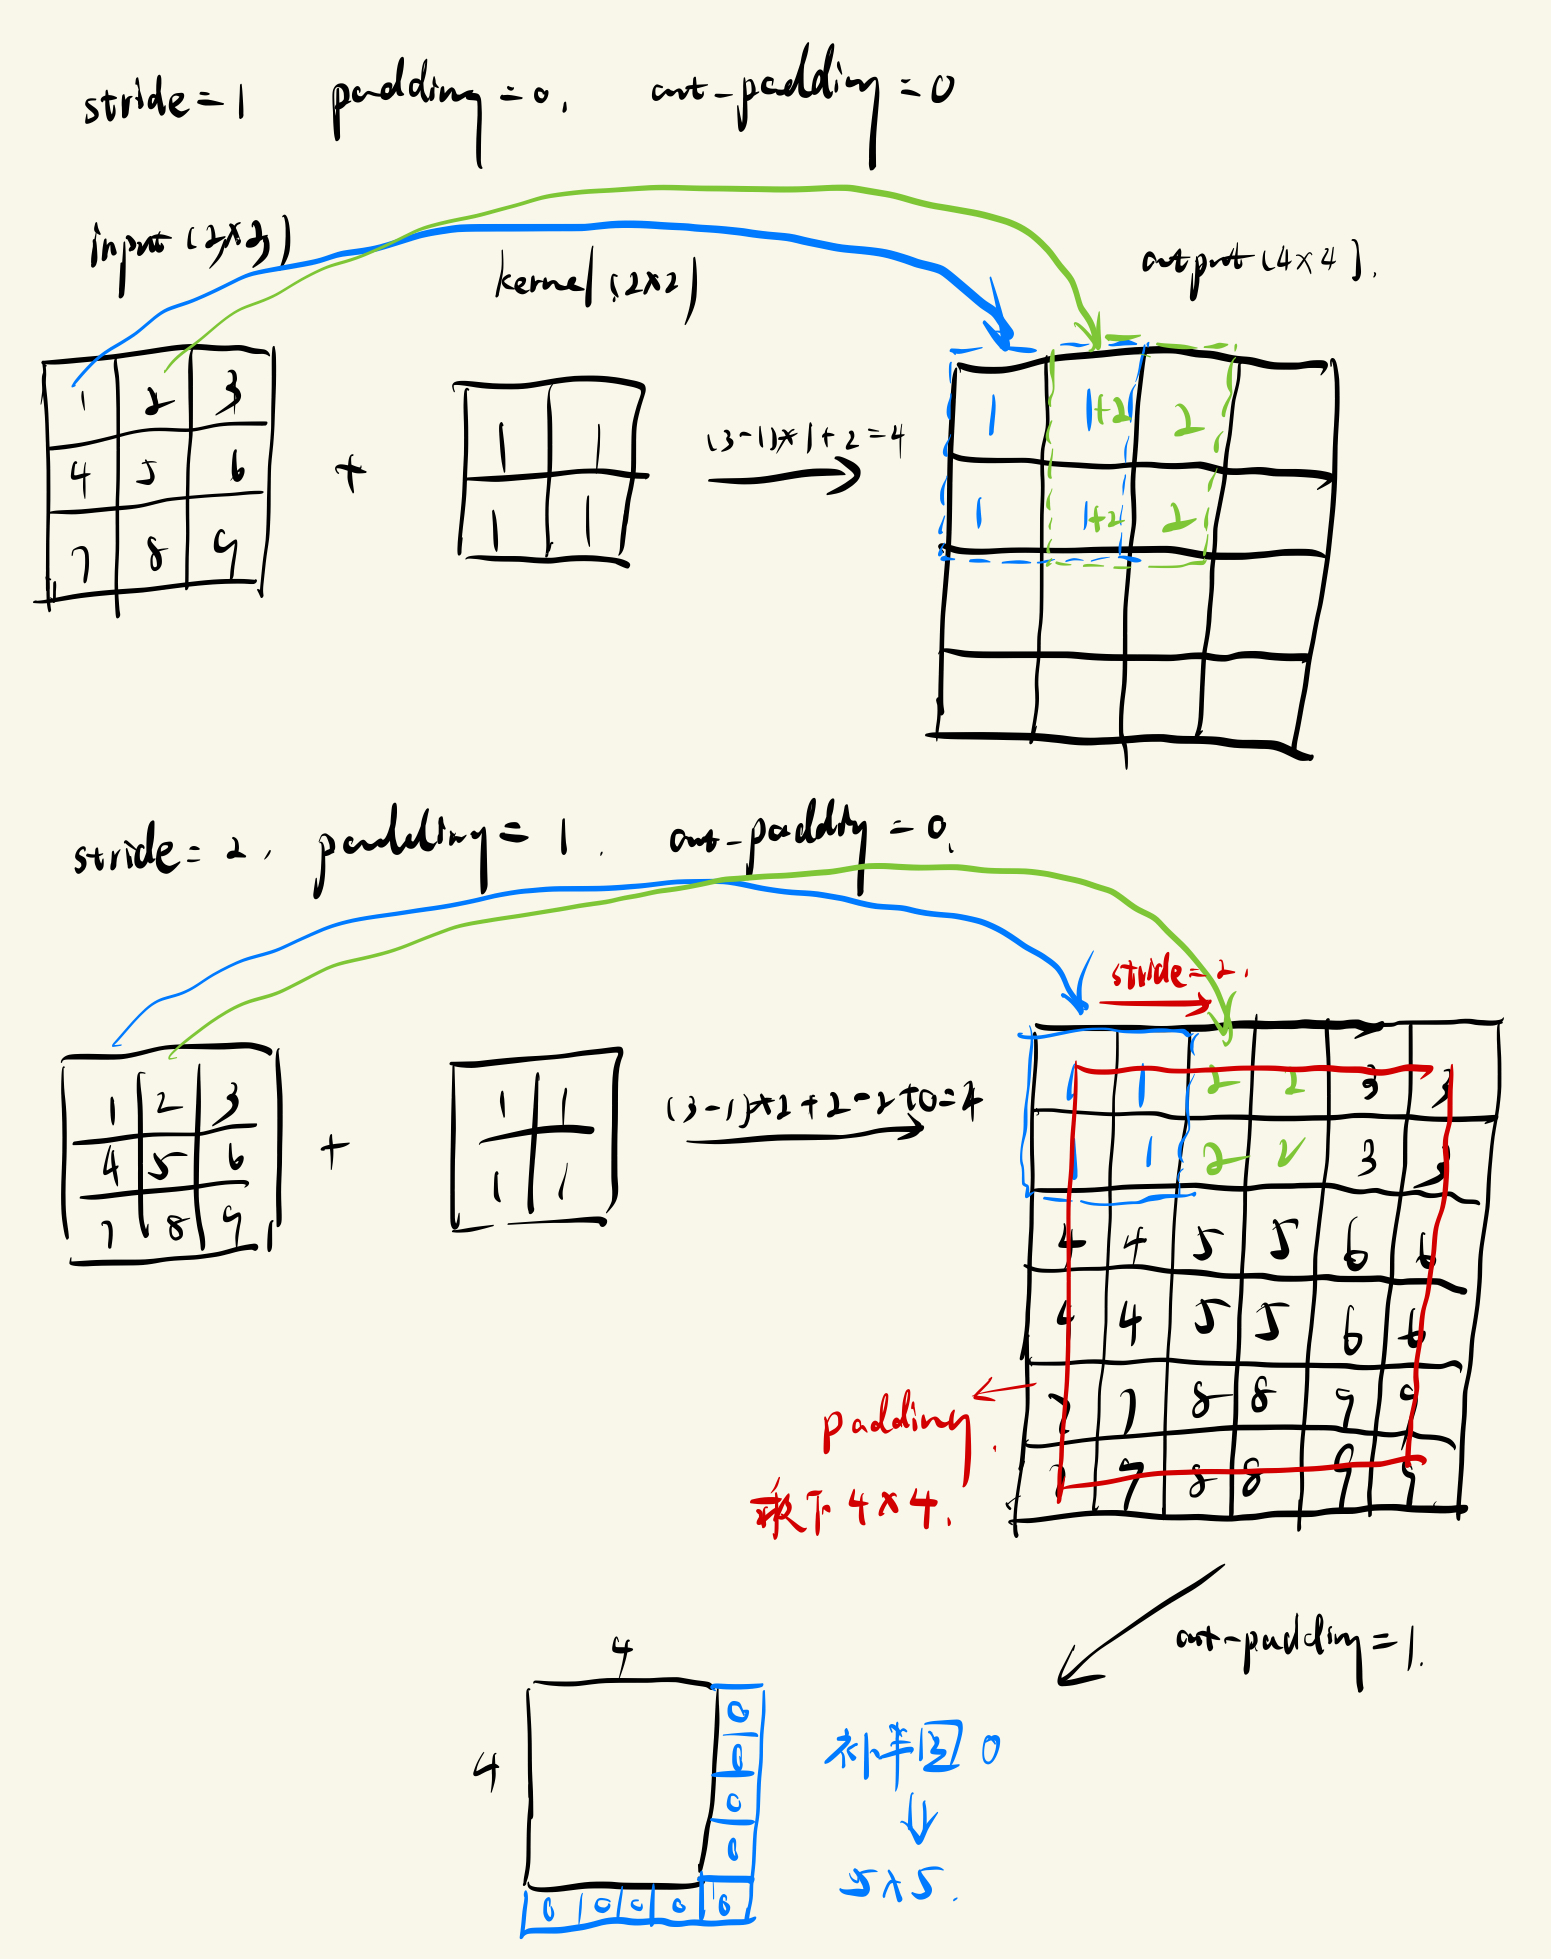 stride=1 padding=0. out-padding=0
input(3×3)
kernel(2×2)
output(4×4).
1 2 3
4 5 6
7 8 9
+
1 1
1 1
(3-1)×1+2=4
1 1+2 2
1 1+2 2
stride=2. padding=1. out-padding=0.
stride=2.
1 2 3
4 5 6
7 8 9
+
1 1
1 1
(3-1)×2+2-2+0=4
1 1 2 2 3 3
1 1 2 2 3 3
4 4 5 5 6 6
4 4 5 5 6 6
7 7 8 8 9 9
7 7 8 8 9 9
padding.
下4×4.
out-padding=1.
4
4
0
0
0
0
0 0 0 0 0
补半圈0
5×5.